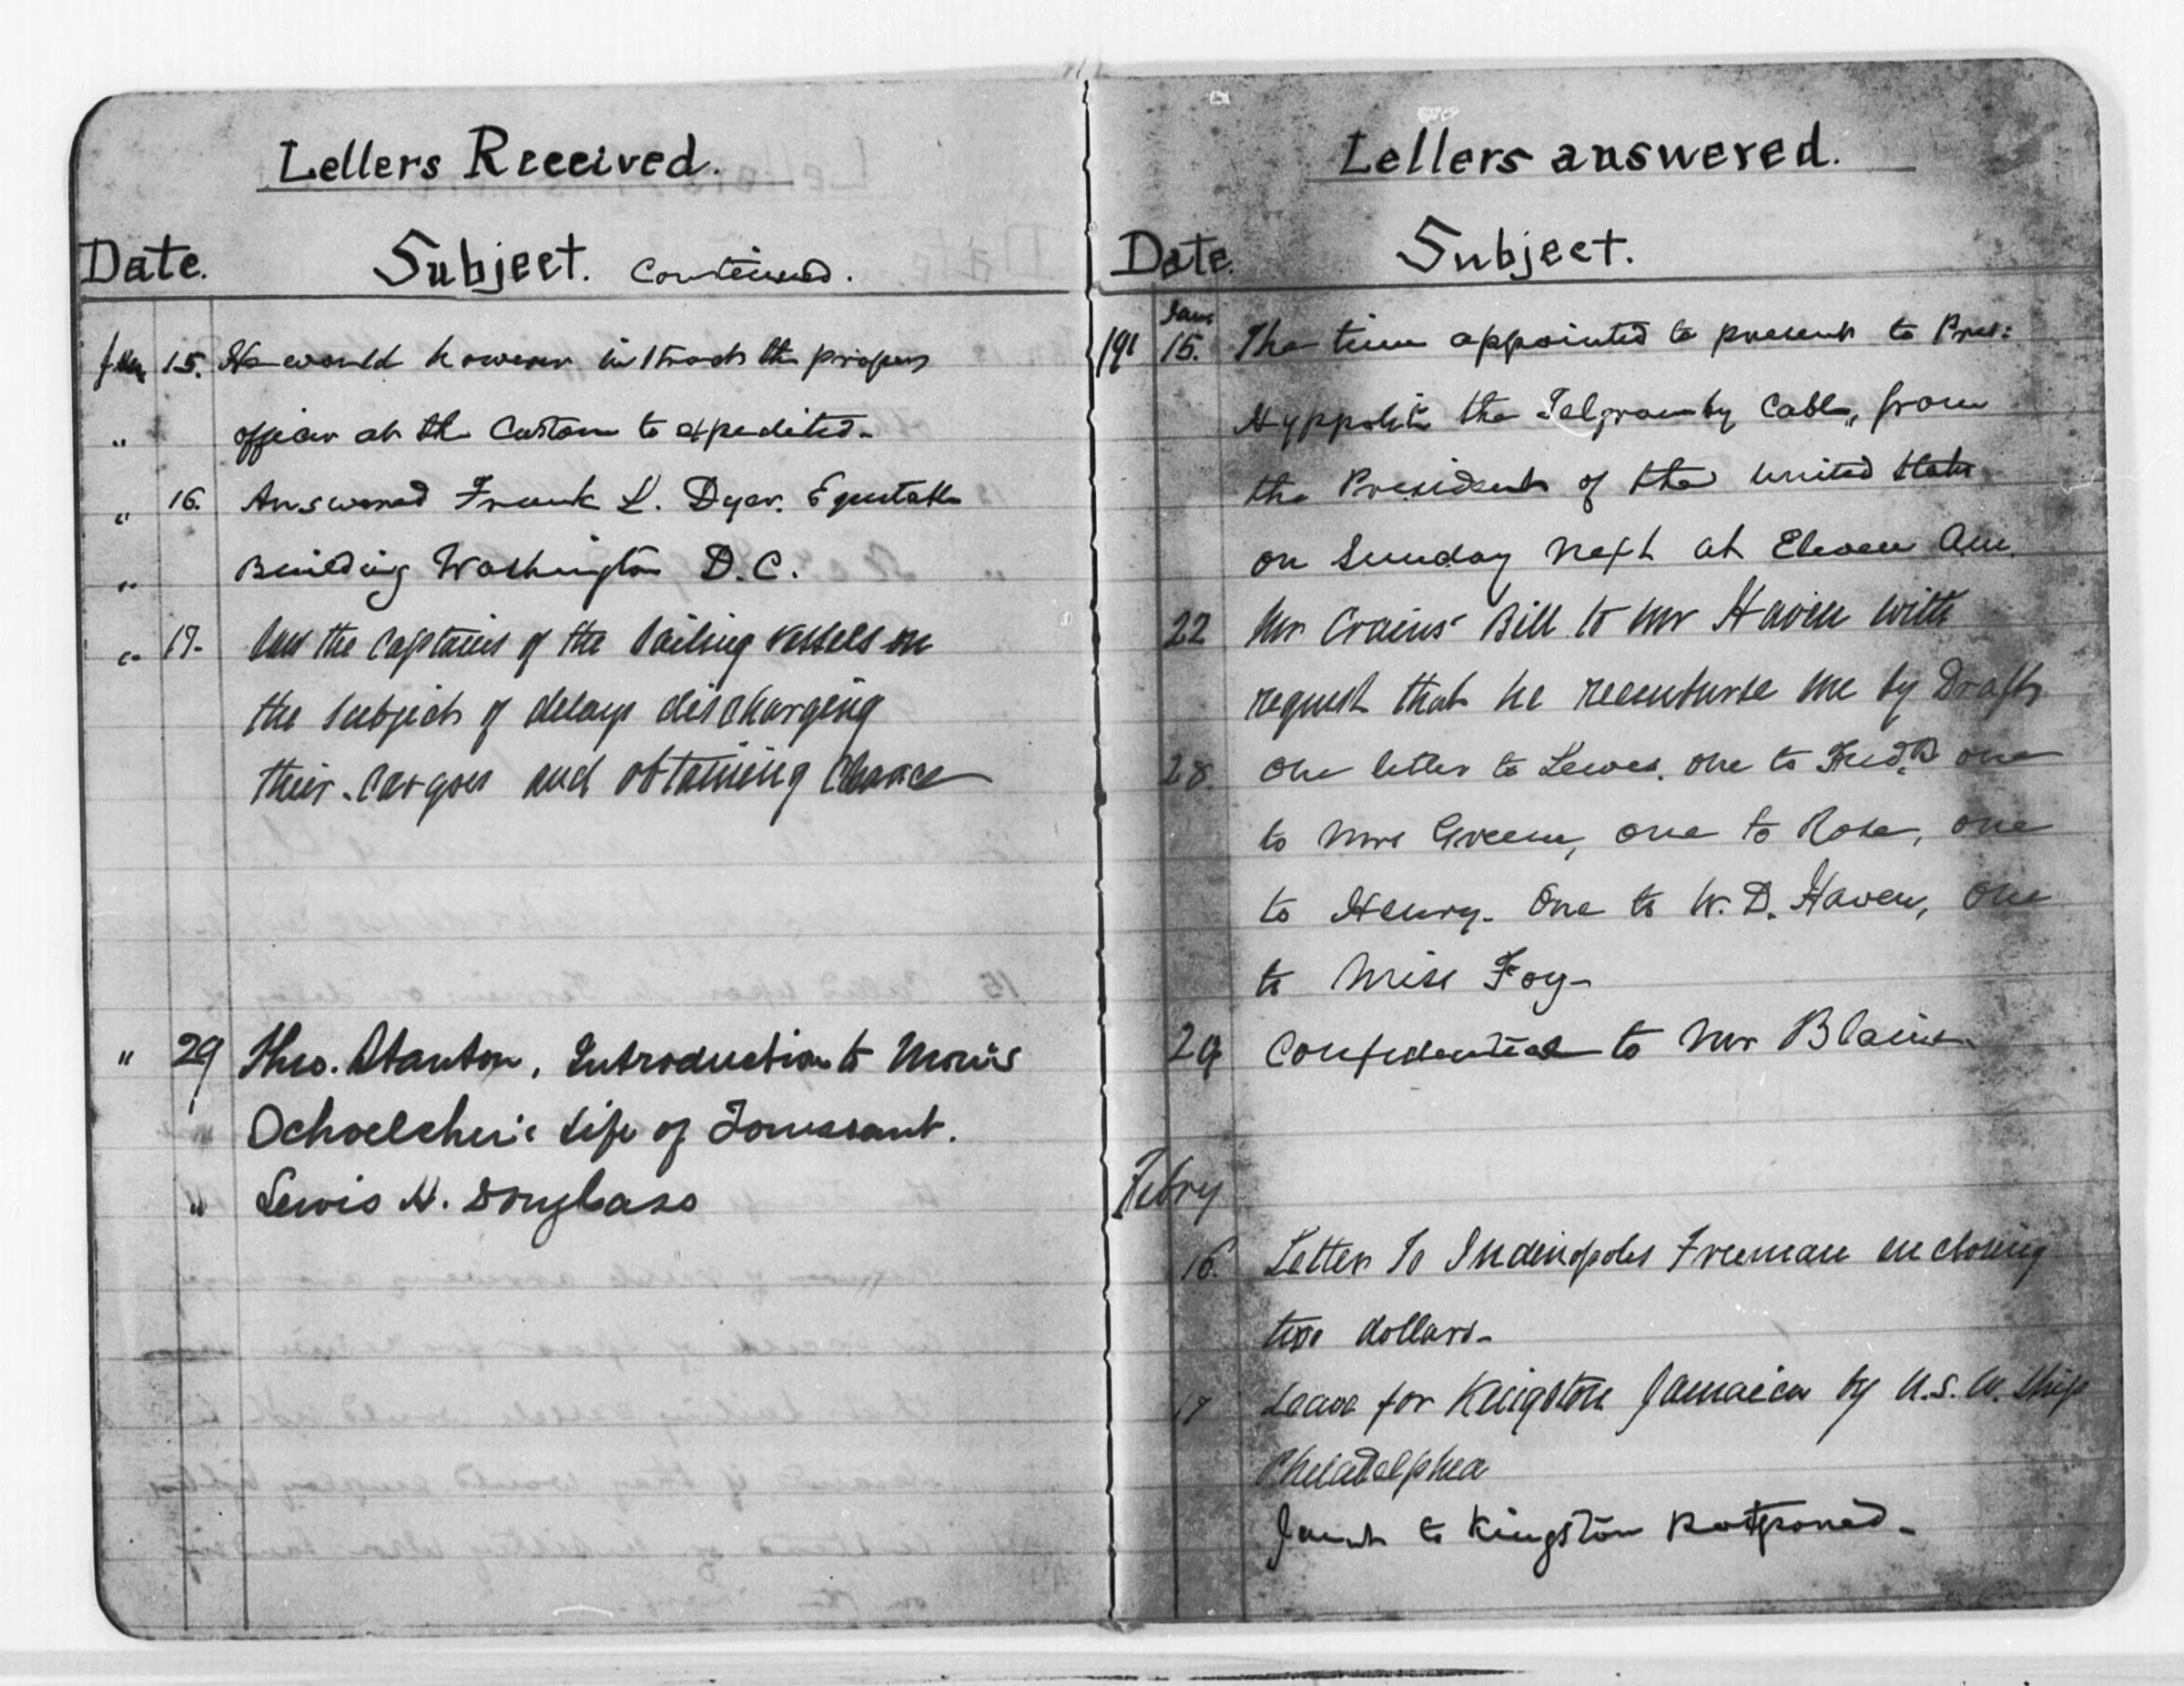 Letters Received.
Date. Subject. Continued.
Jan 15. He would however instruct the proper
" officer at the Custom to expedited-
" 16. Answered Frank L. Dyer. Equitable
" Building Washington D.C.
" 17. the Captains of the Sailing vessels on
the subject of delays discharging
their cargoes and obtaining
" 29 Theo. Stanton, Introduction to Mons
" Schoelcher's life of Toussaint.
" Lewis H. Douglass
Letters answered.
Date. Subject.
Jan
15. The time appointed to present to Pres:
Hyppolite the Telgram by Cable, from
the President of the United States
on Sunday next at Eleven Am.
22 Mr Crains' Bill to Mr Haven with
request that he reemburse me by Draft
28. One letter to Lewes. One to Fredk one
to Mrs Greene, one to Rosa, one
to Henry. One to W. D. Haven, One
to Miss Foy-
29 Confidential to Mr Blaine
Febry
16. Letter To Indienopoles Freeman enclosing
two dollars-
17 Leave for Kingston Jamaica by U.S. W. Ship
Philadelphia
Jaunt to Kingston Postponed-